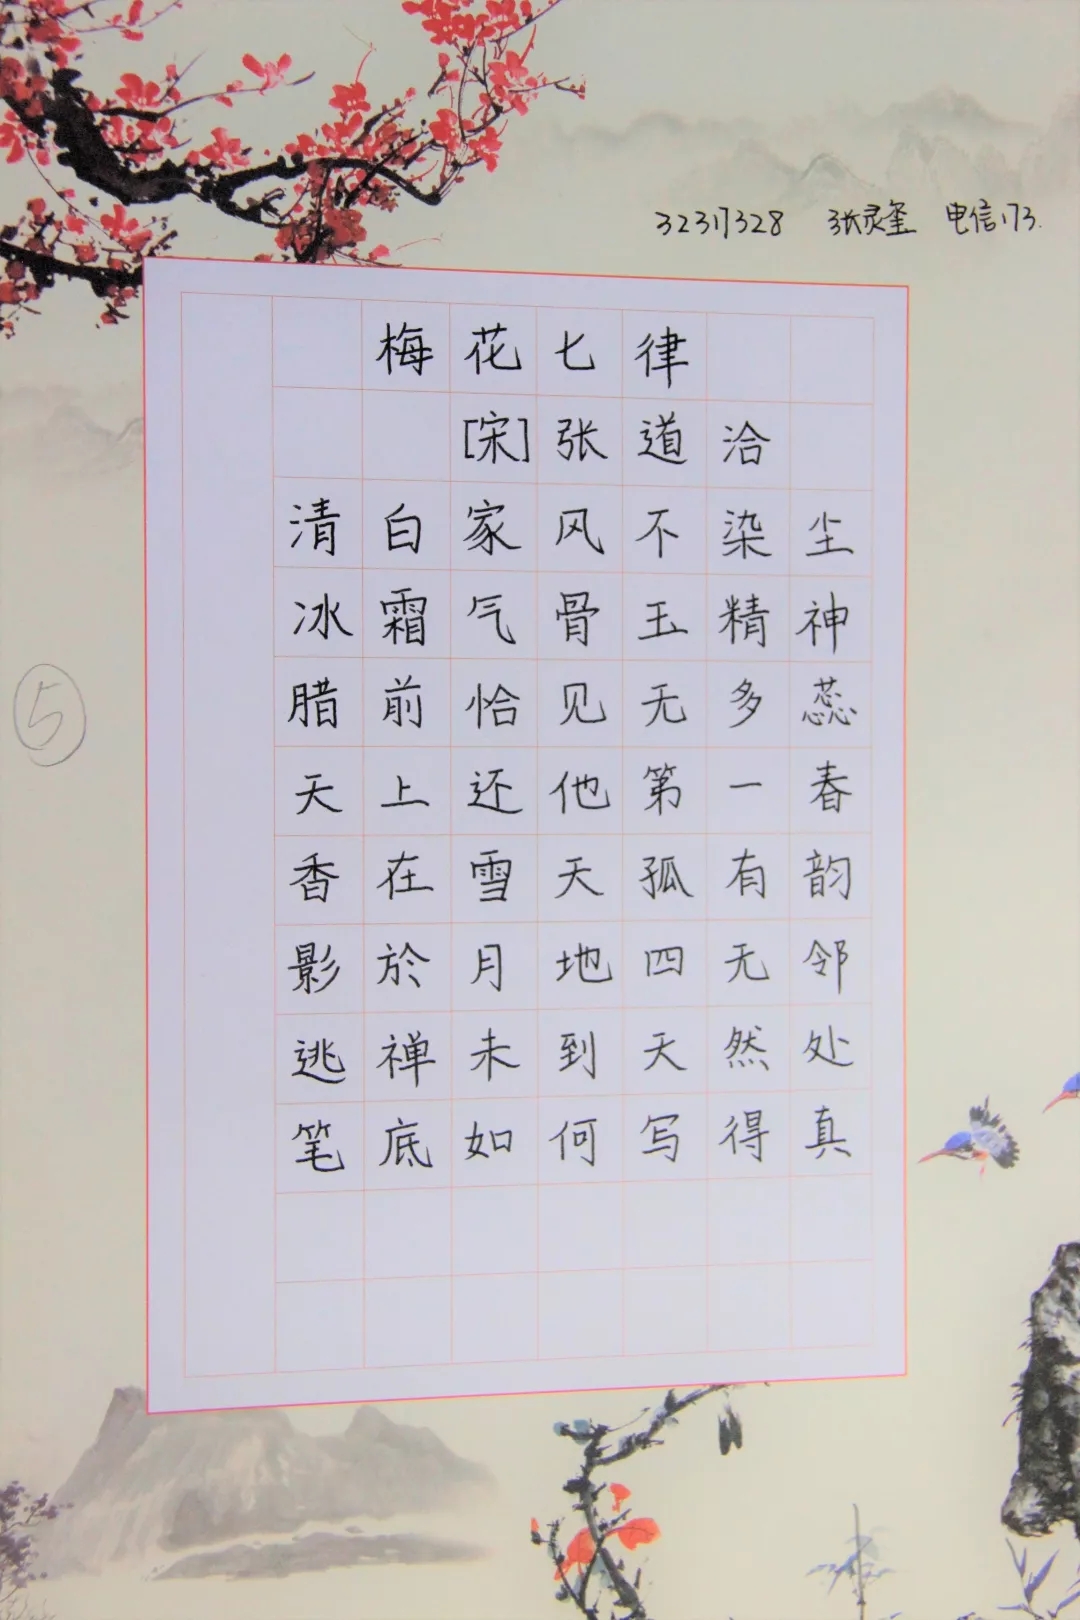 3231328 张灵玺 电信173.
梅花七律
[宋]张道洽
清白家风不染尘
冰霜气骨玉精神
腊前恰见无多蕊
天上还他第一春
香在雪天孤有韵
影於月地四无邻
逃禅未到天然处
笔底如何写得真
5